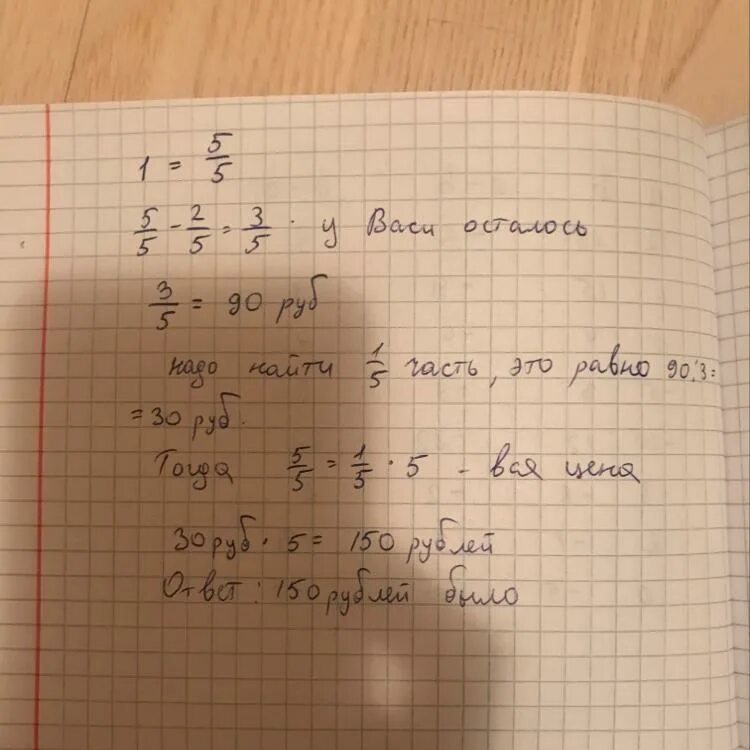 1 = 5/5
5/5 - 2/5 = 3/5 · у Васи осталось
3/5 = 90 руб
надо найти 1/5 часть, это равно 90:3=
=30 руб.
Тогда 5/5 = 1/5 · 5 - вся цена
30 руб · 5 = 150 рублей
Ответ: 150 рублей было